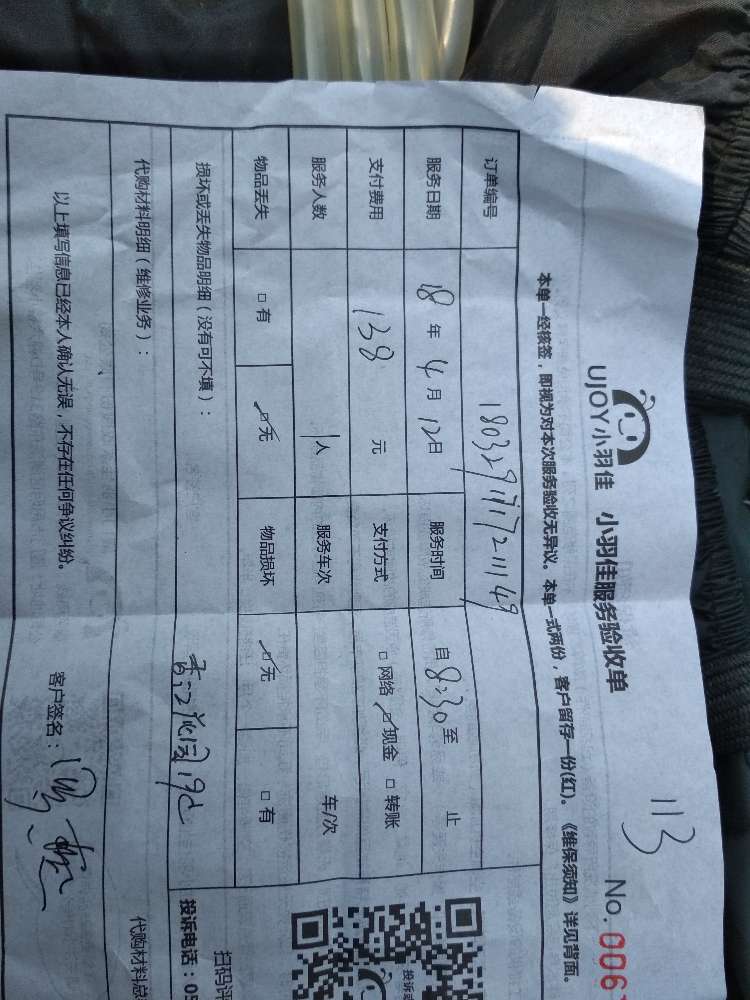 113
UJOY小羽佳 小羽佳服务验收单 No.006
本单一经核签,即视为对本次服务验收无异议。本单一式两份,客户留存一份(红)。《维保须知》详见背面。
订单编号
服务日期 18年4月12日 服务时间 自8:30至 止
支付费用 138 元 支付方式 □网络 ☑现金 □转账
服务人数 1人 服务车次 车/次
物品丢失 □有 ☑无 物品损坏 ☑无 □有
损坏或丢失物品明细(没有可不填):
代购材料明细(维修业务): 代购材料总
以上填写信息已经本人确认无误,不存在任何争议纠纷。 客户签名:
投诉
扫码评
投诉电话:05